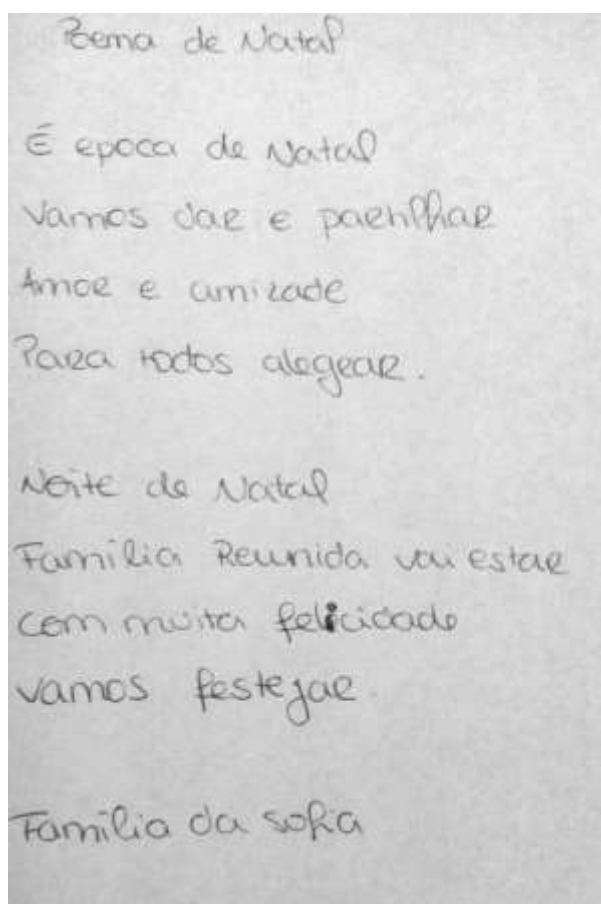 Poema de Natal
É epoca de Natal
Vamos dar e partilhar
Amor e amizade
Para todos alegrar.
Noite de Natal
Família Reunida vai estar
com muita felicidade
vamos festejar.
Família da sofia